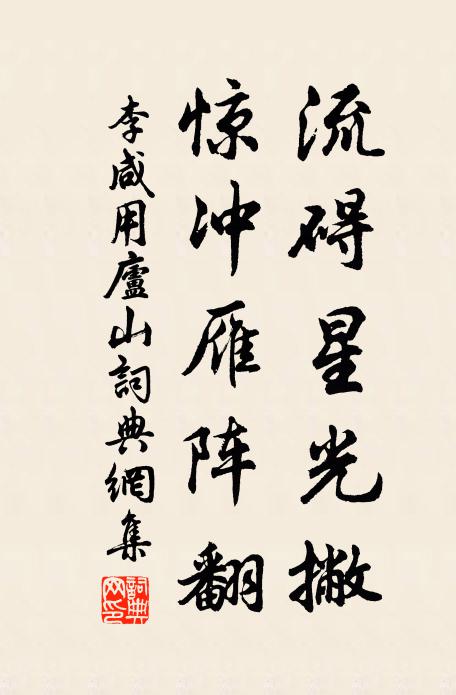 流碍星光撇
惊冲雁阵翻
李咸用廬山詞典網集
詞典网印